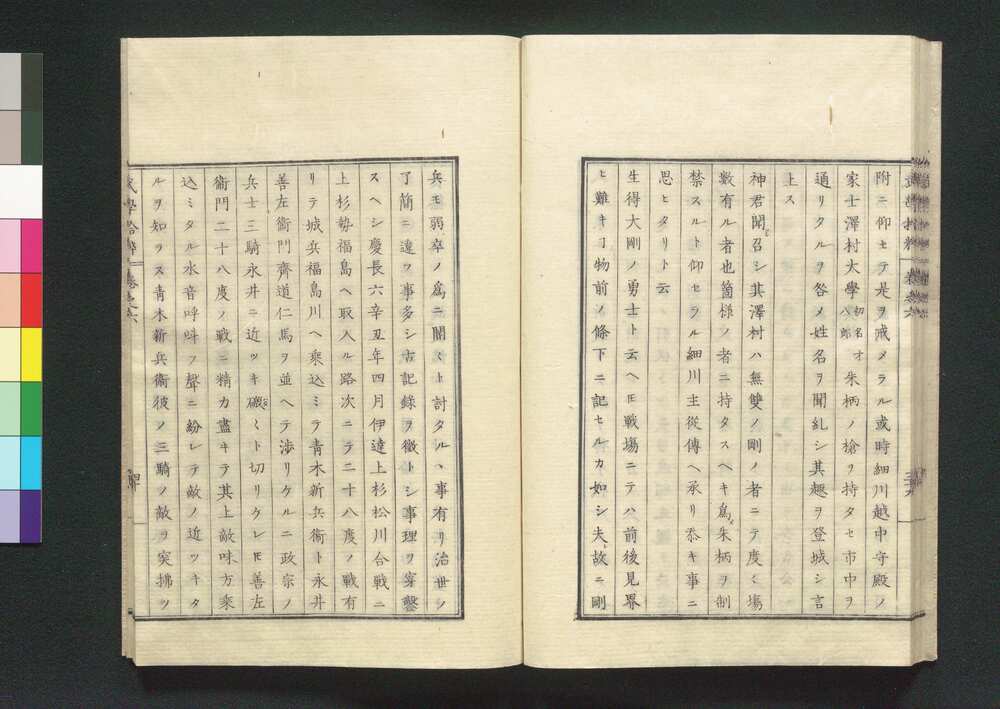 附ニ仰セテ是ヲ戒メラル或時細川越中守殿ノ
家士澤村大學初名才八郎朱柄ノ槍ヲ持タセ市中ヲ
通リタルヲ各メ姓名ヲ聞糺シ其趣ヲ登城シ言
上ス
神君聞召シ其澤村ハ無雙ノ剛ノ者ニテ度〻塲
數有ル者也箇様ノ者ニ持タスヘキ爲朱柄ヲ制
禁スルト仰セラル細川主從傳ヘ承リ忝キ事ニ
思ヒタリト云
生得大剛ノ勇士ト云ヘ𪜈戰塲ニテハ前後見界
ヒ難キヿ物前ノ條下ニ記セルカ如シ夫故ニ剛
兵モ弱卒ノ爲ニ闘スト討タルヽ事有リ治世ノ
了簡ニ違フ事多シ古記錄ヲ徵トシ事理ヲ穿鑿
スヘシ慶長六辛丑年四月伊達上杉松川合戰ニ
上杉勢福島ヘ取入ル路次ニテ二十八度ノ戰有
リテ城兵福島川ヘ乘込ミテ青木新兵衞ト永井
善左衞門齊道仁馬ヲ並ヘテ渉リケルニ政宗ノ
兵士三騎永井ニ近ッキ礑〻ト切リケレ𪜈善左
衞門二十八度ノ戰ニ精力盡キテ其上敵味方乘
込ミタル水音呼呌フ聲ニ紛レテ敵ノ近ッキタ
ルヲ知ラス青木新兵衞彼ノ三騎ノ敵ヲ突拂ツ